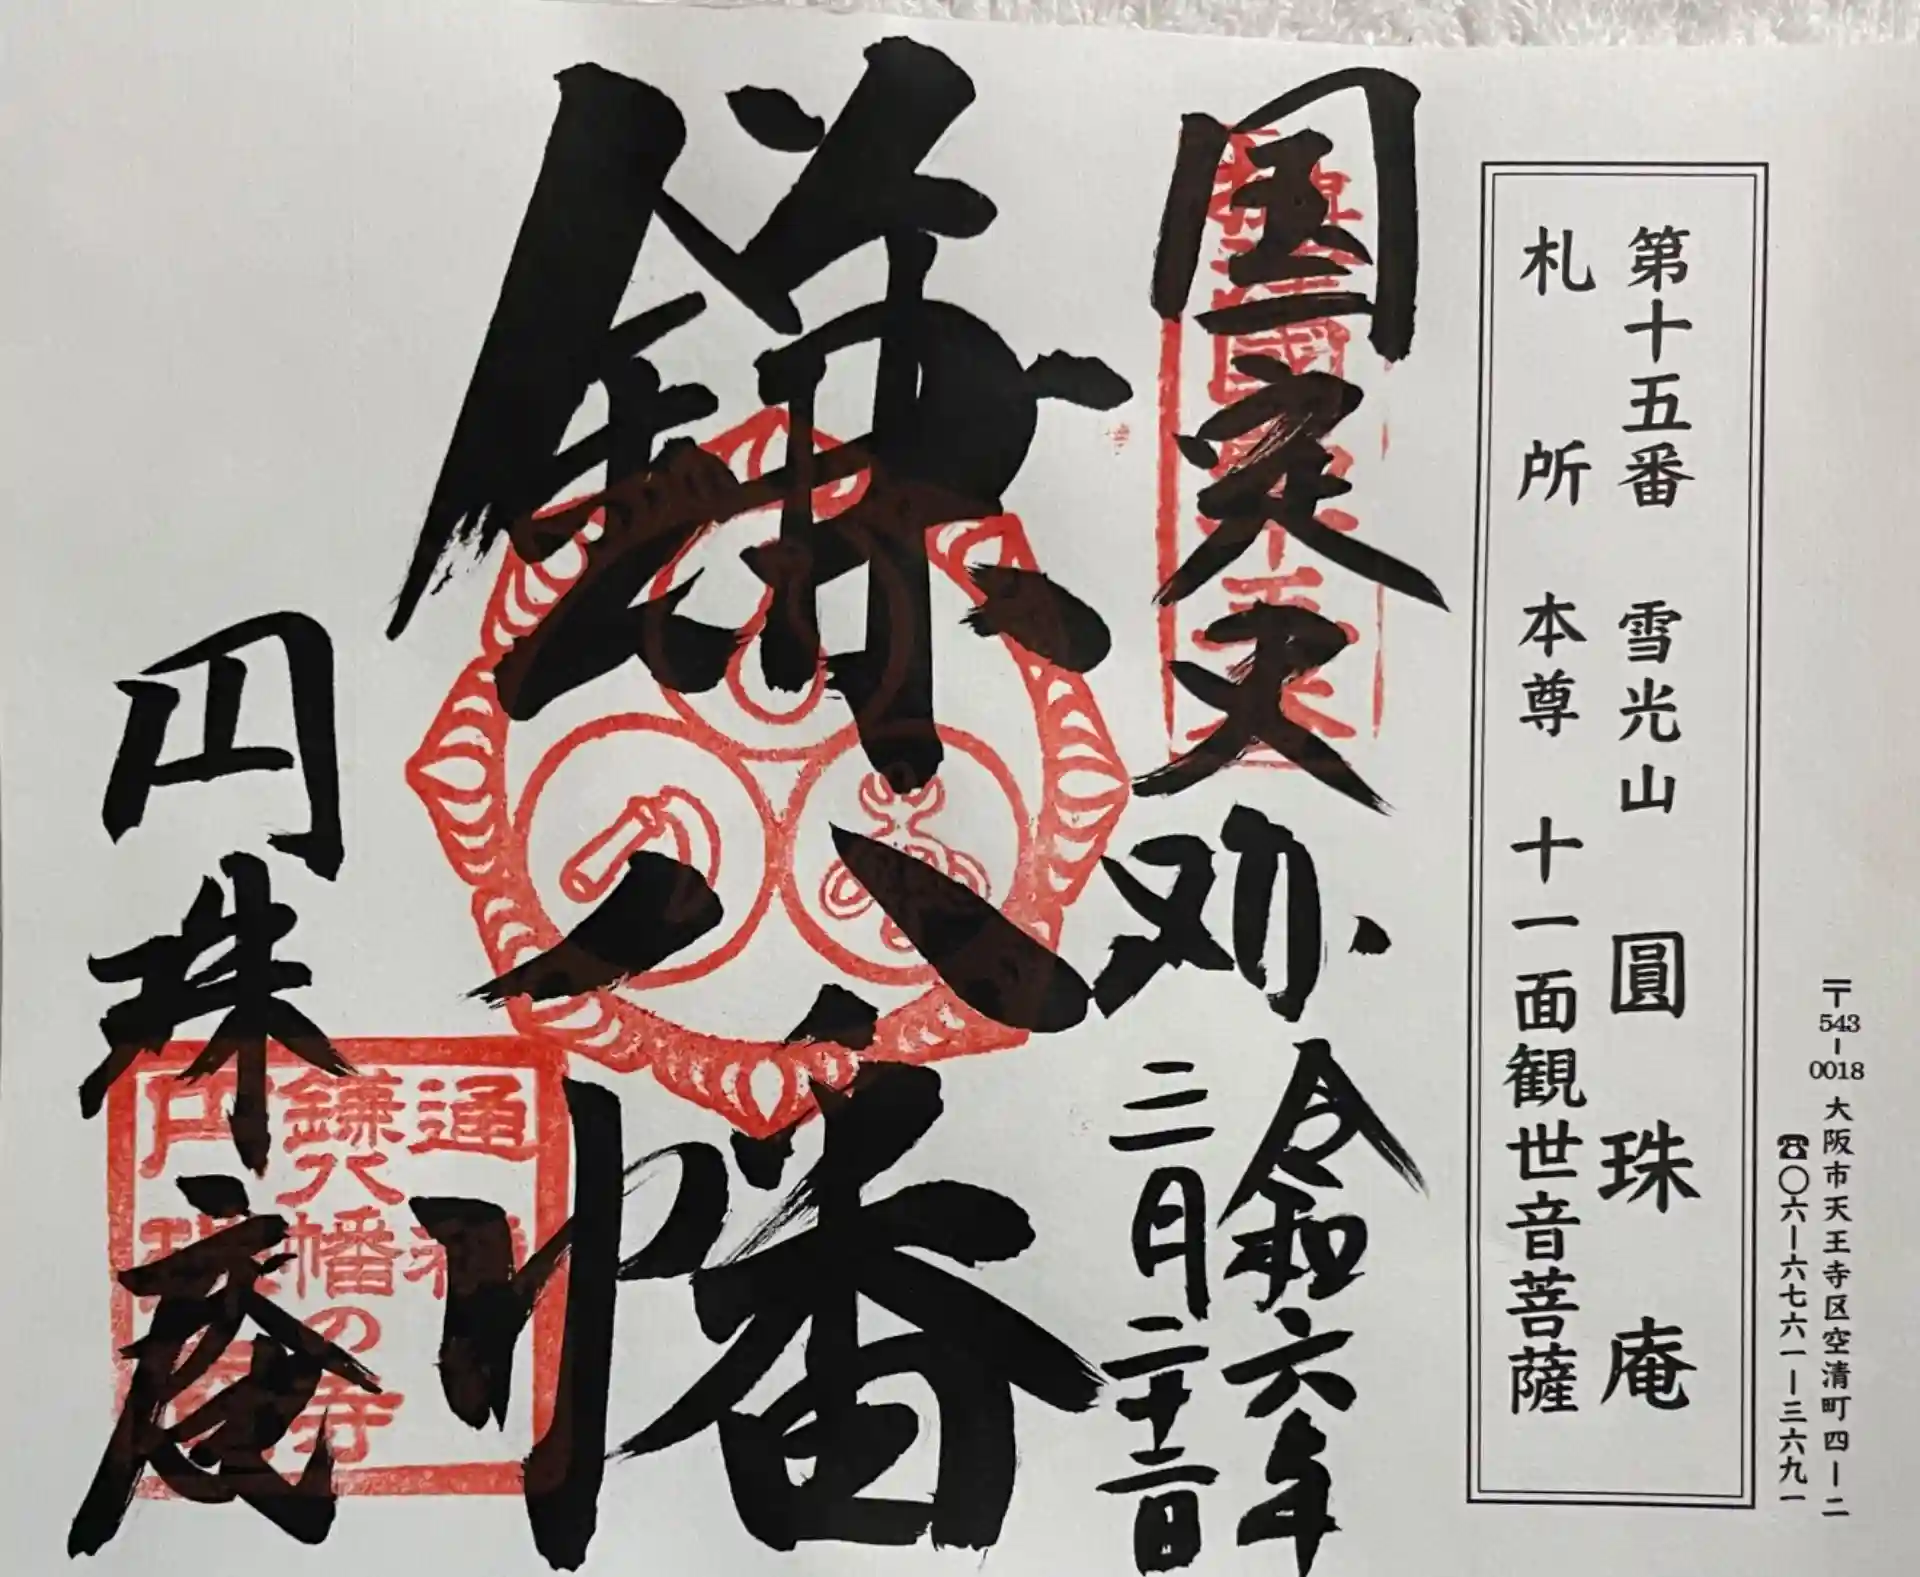 〒543-0018 大阪市天王寺区空清町四ー二
☎〇六ー六七六一ー三六九一
第十五番 雪光山 圓珠庵
札所 本尊 十一面観世音菩薩
国定史跡
令和六年
三月二十二日
鎌八幡
円珠庵
通称
鎌八幡の寺
円珠庵